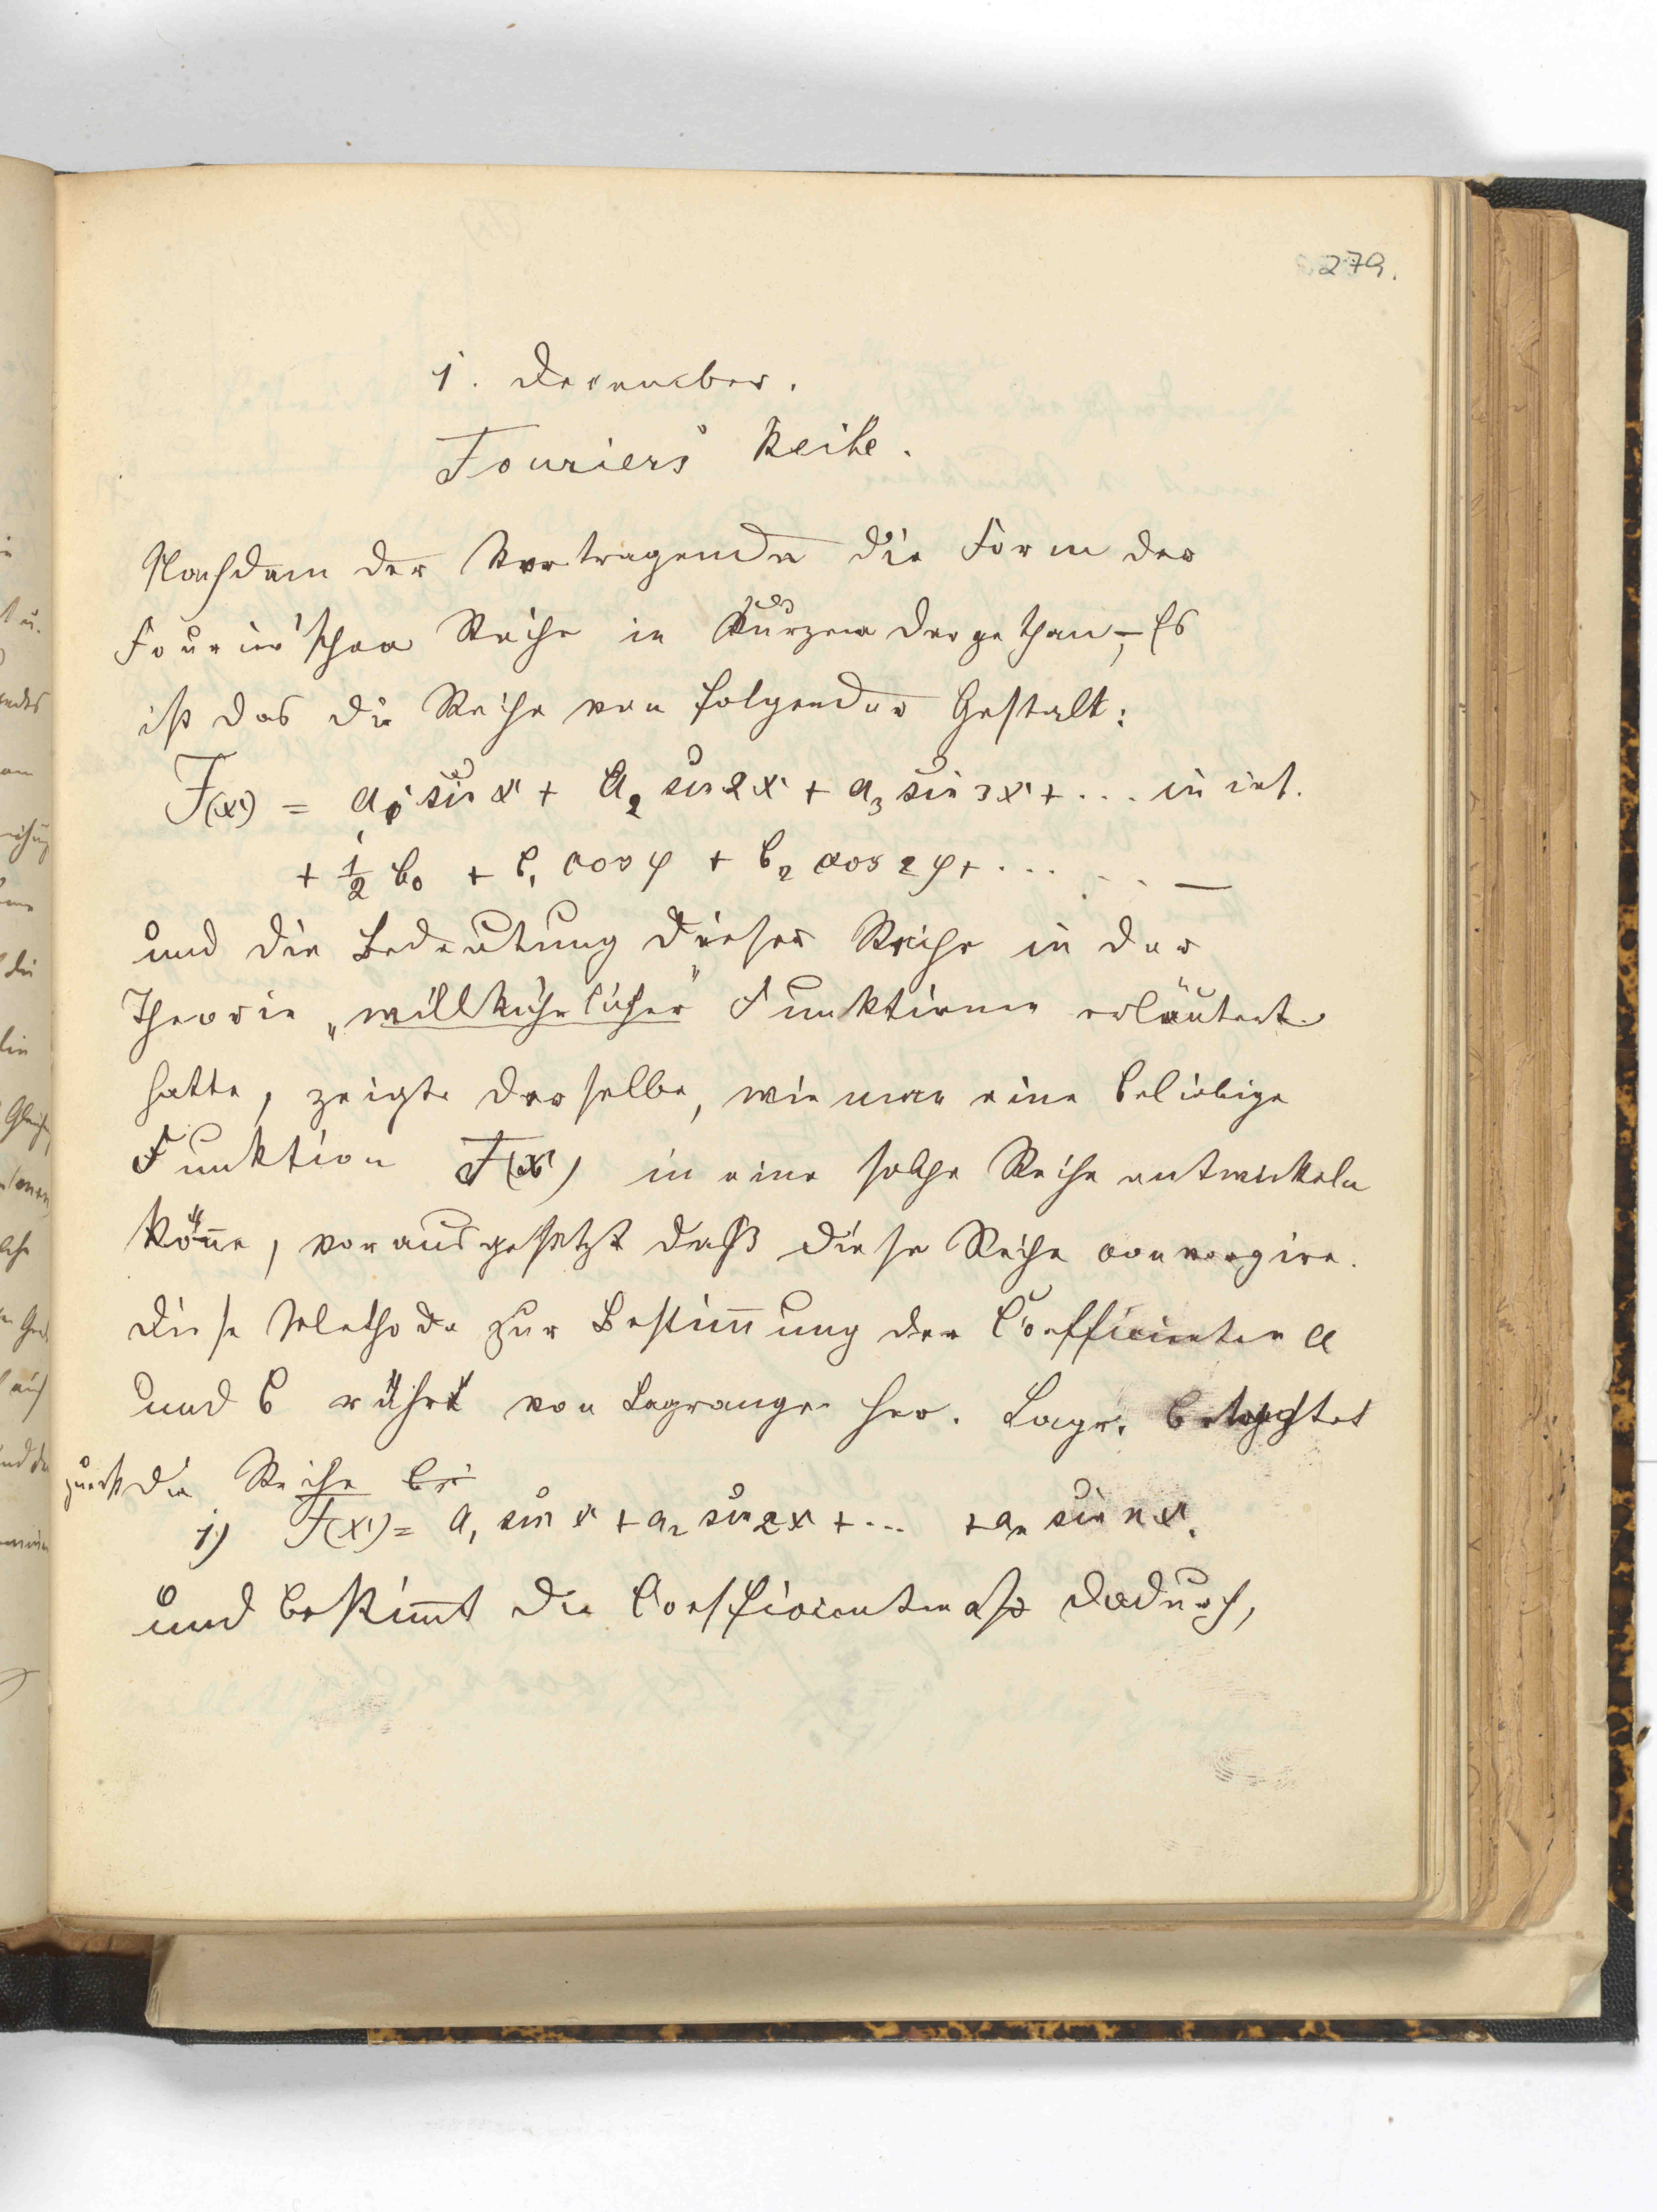 279.
1. December.
Fouriers Reihe.
Nachdem der Vortragende die Form der
Fourier'schen Reihe in Kürzem dargethan, – Es
ist das die Reihe von folgender Gestalt:
F(x) = a₁ sin x + a₂ sin 2x + a₃ sin 3x + ... in inf.
+ ½ b₀ + b₁ cos φ + b₂ cos 2φ + ... . . —
und die Bedeutung dieser Reihe in der
Theorie „willkührlicher" Funktionen erläutert
hatte, zeigte derselbe, wie man eine beliebige
Funktion F(x) in eine solche Reihe entwickeln
könne, vorausgesetzt daß diese Reihe convergire.
Diese Methode zur Bestimmung der Coefficienten a
und b rührt von Lagrange her. Lagr. betrachtet
zuerst die Reihe
1) F(x) = a₁ sin x + a₂ sin 2x + ... + aₙ sin nx.
und bestimmt die Coefficienten dadurch,